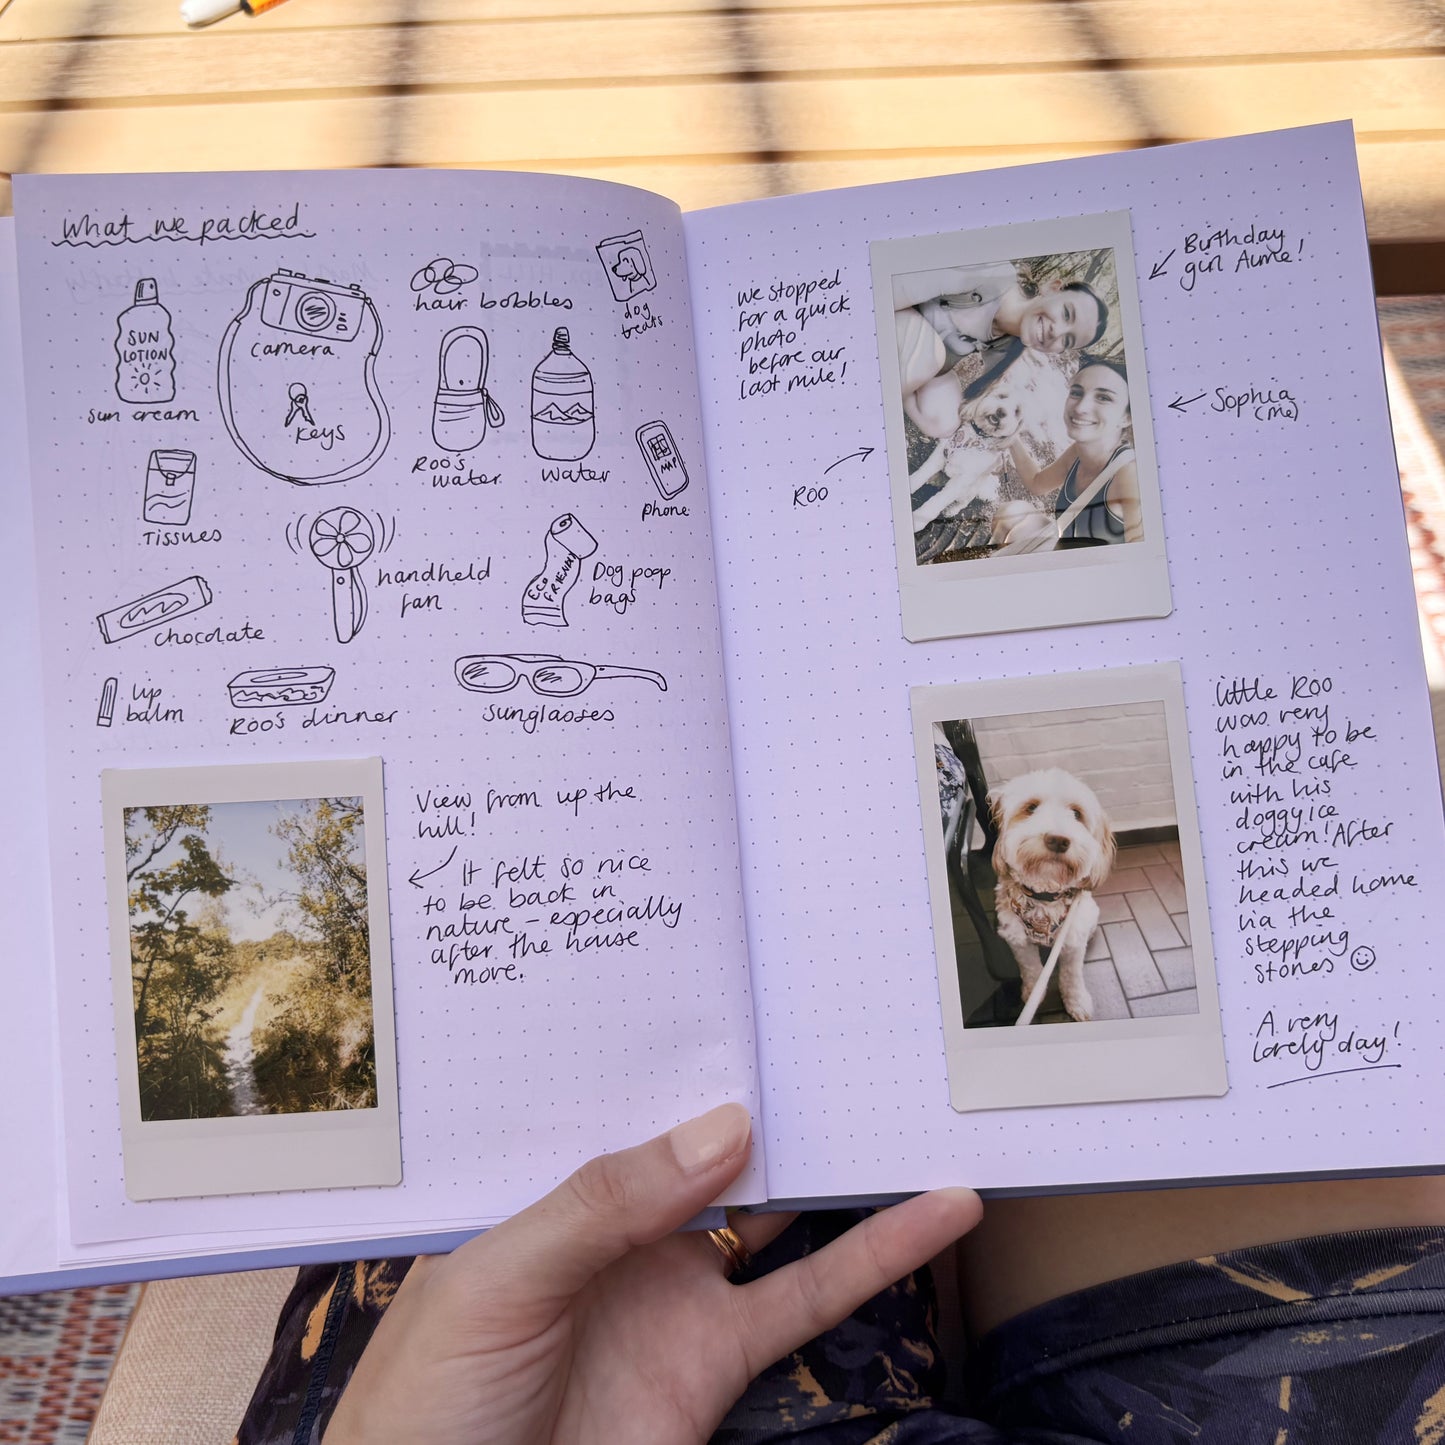 What we packed
SUN
LOTION
Sun cream
camera
keys
hair bobbles
dog
treats
Roo's
water
water
MAP
phone
Tissues
handheld
fan
ECO
FRIENDLY
Dog poop
bags
chocolate
lip
balm
Roo's dinner
sunglasses
View from up the
hill!
It felt so nice
to be back in
nature - especially
after the house
move.
We stopped
for a quick
photo
before our
last mile!
Birthday
girl Aime!
Sophia
(me)
Roo
Little Roo
was very
happy to be
in the cafe
with his
doggy ice
cream! After
this we
headed home
via the
stepping
stones
A very
lovely day!